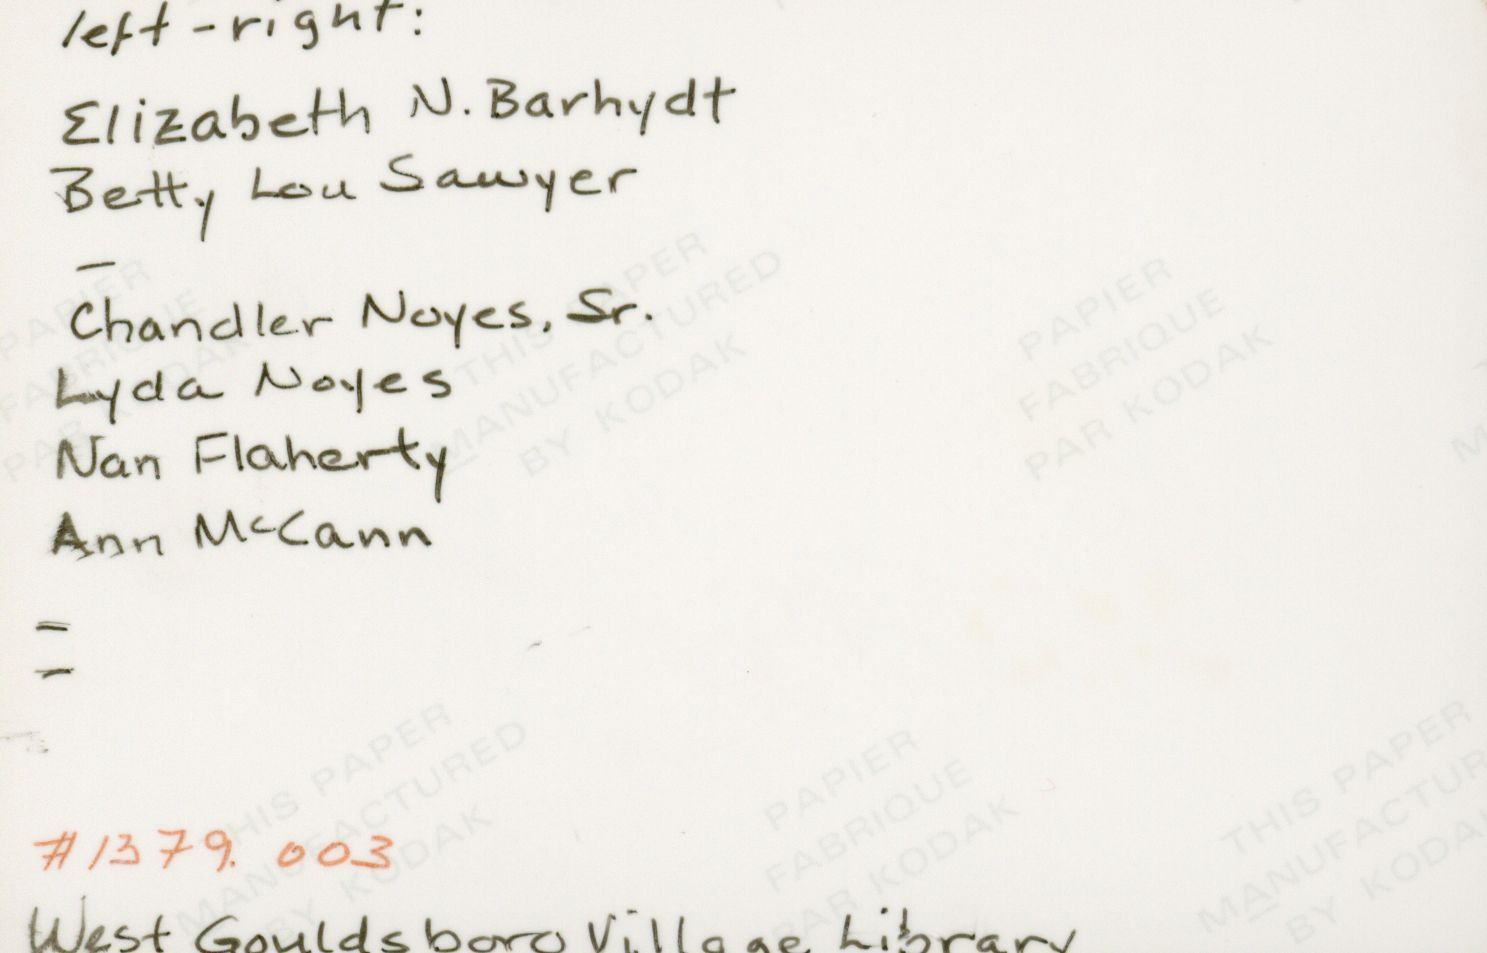 left-right:
Elizabeth N. Barhydt
Betty Lou Sawyer
—
Chandler Noyes, Sr.
Lyda Noyes
Nan Flaherty
Ann McCann
—
—
#1379.003
West Gouldsboro Village Library
PAPIER
FABRIQUE
PAR KODAK
THIS PAPER
MANUFACTURED
BY KODAK
PAPIER
FABRIQUE
PAR KODAK
THIS PAPER
MANUFACTURED
BY KODAK
PAPIER
FABRIQUE
PAR KODAK
THIS PAPER
MANUFACTUR
BY KODA